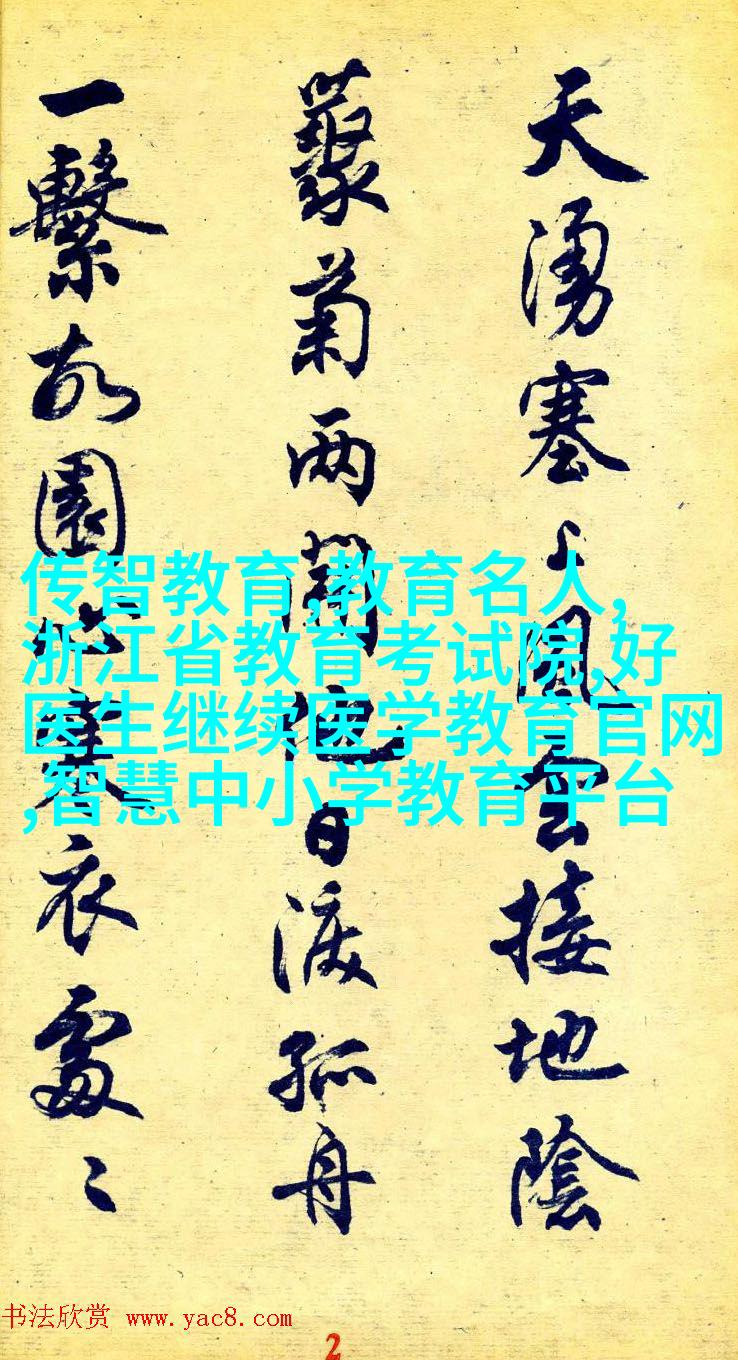 天湧塞上風雲接地陰
藂菊两開他日淚孤舟
一繫故園心寒衣處〻
传智教育,教育名人,
浙江省教育考试院,好
医生继续医学教育官网
,智慧中小学教育平台
书法欣赏 www.yac8.com
2